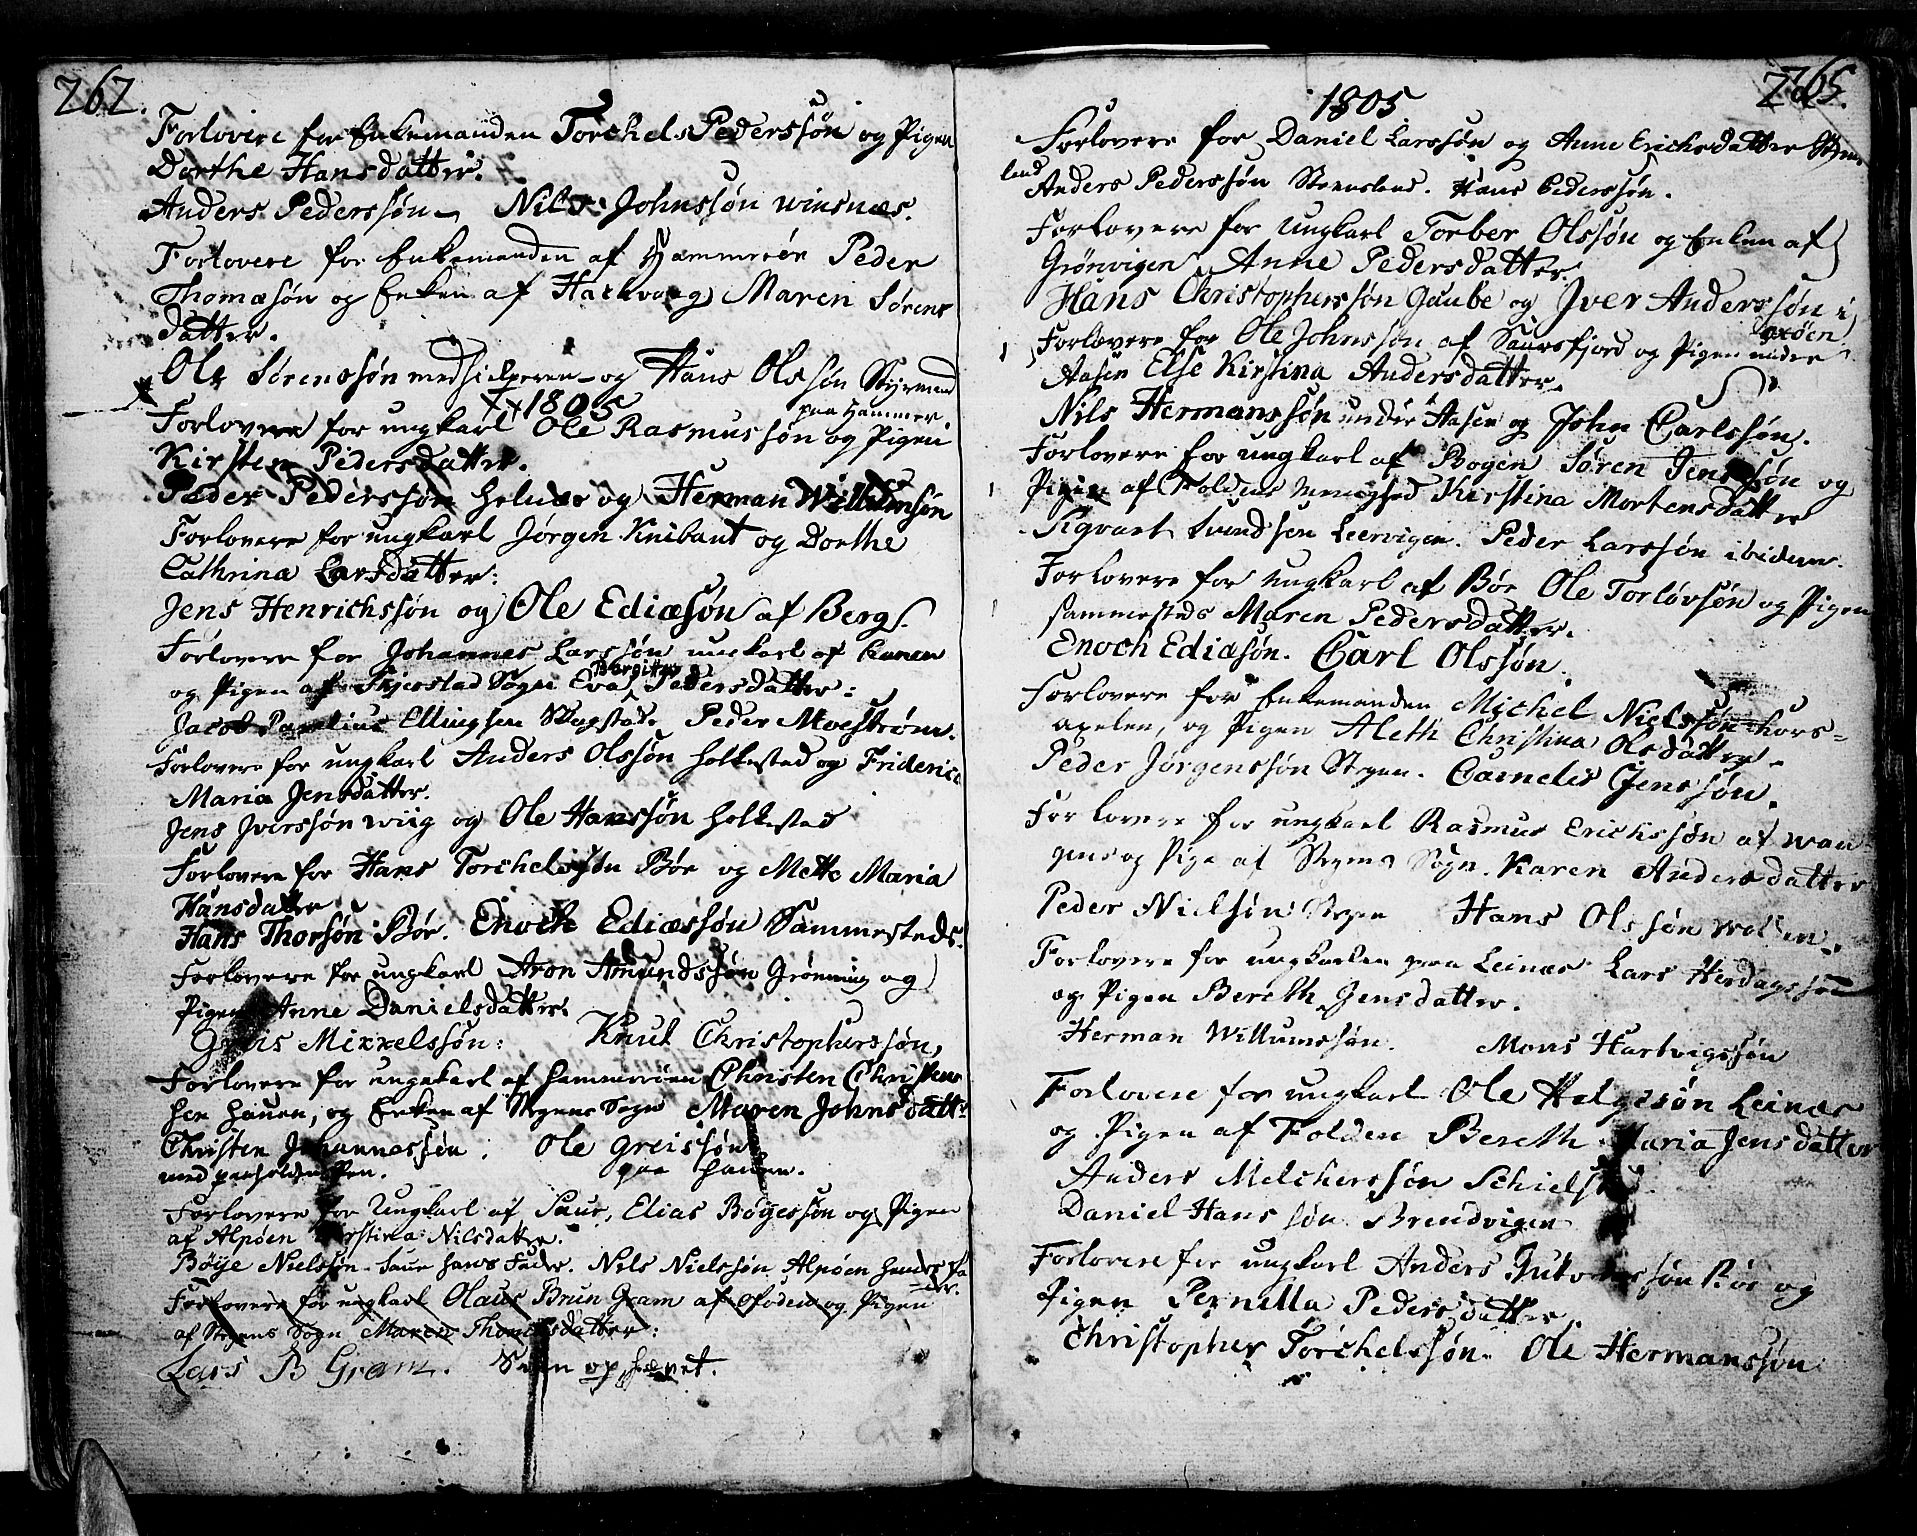 262.
Forlovere for Enkemanden Torchels Pederssøn og Pigen
Dorthe Hansdatter.
Anders Pederssøn Nils Johnssøn winsnæs.
Forlovere for Enkemanden af Hammerøe Peder
Thomæsøn og Enken af Maren Sørens
datter.
Ole Sørenssøn medhielperen og Hans Olssøn Styrmand
paa Hammer.
1805
Forlovere for ungkarl Ole Rasmussøn og Pigen
Kirsten Pedersdatter.
Peder Pederssøn Helnæs og Herman Willumsøn
Forlovere for ungkarl Jørgen Knibant og Dorthe
Cathrina Larsdatter:
Jens Henrichssøn og Ole Ediæsøn af Berg.
Forlovere for Johannes Larssøn ungkarl af
og Pigen af Skjerstad Sogn Eva Bergitte Pedersdatter:
Jacob Paulius Ellingsen Skagstad. Peder Moestrøm.
Forlovere for ungkarl Anders Olssøn Holkestad og Friderica
Maria Jensdatter.
Jens Iverssøn wiig og Ole Hanssøn Holkestad
Forlovere for Hans Torchelssøn Bøe og Mette Maria
Hansdatter
Hans Thorsøn Bøe. Enoch Ediæssøn Sammesteds.
Forlovere for ungkarl Aron Amundssøn Grønning og
Pigen Anne Danielsdatter.
Greis Mikkelssøn: Knut Christopherssøn,
Forlovere for ungekarl af Hammerøen Christen Christen
sen Hauen, og Enken af Stegens Sogn Maren Johns datter
Christen Johannessøn. Ole Greissøn
med paaholden Pen. paa Hauen.
Forlovere for Ungkarl af Saur, Elias Bøgessøn og Pigen
af Alpøen Kirstina Nilsdatter.
Bøye Nielssøn Saur hans Fader. Nils Nielssøn Alpøen hendes Fa
der.
Forlovere for ungkarl Olaus Brun Gram af Foden og Pigen
af Stegens Sogn Maren Thomisdatter:
Lars B Gram. Igien ophævet.
1805
265.
Forlovere for Daniel Larssøn og Anne Erichsdatter Steens
land
Anders Pederssøn Steensland. Hans Pederssøn.
Forlovere for ungkarl Torber Olssøn og Enken af
Grønvigen Anne Pedersdatter
Hans Christopherssøn Gaube og Iver Anderssøn i
øen
Forlovere for Ole Johnssøn af Saursfjord og Pigen under
Aasen Else Kirstina Andersdatter.
Nils Hermanssøn under Aasen og John Carlssøn.
Forlovere for ungkarl af Bogen Søren Jenssøn og
Pigen af Foldens Menighed Kirstina Mortensdatter
Sigvart Svendsen Leervigen. Peder Larssøn ibidem.
Forlovere for ungkarl af Bøe Ole Torløvsøn og Pigen
sammesteds Maren Pedersdatter.
Enoch Ediæsøn. Carl Olssøn.
Forlovere for Enkemanden Michel Nielssøn Kors=
axelen, og Pigen Aleth Christina Olsdatter.
Peder Jørgenssøn Stegen. Cornelis Jenssøn.
Forlovere for ungkarl Rasmus Erichssøn af wan
gen og Pige af Stegens Sogn Karen Andersdatter
Peder Nielsøn Stegen Hans Olssøn wolden.
Forlovere for ungkarlen paa Leinæs Lars Herdagssøn
og Pigen Bereth Jensdatter.
Herman Willumssøn. Mons Hartvigssøn
Forlovere for ungkarl Ole Helgesøn Leinæs
og Pigen af Folden Bereth Maria Jensdatter
Anders Melcherssøn Schielst
Daniel Hanssøn Brendvigen
Forlovere for ungkarl Anders søn Bøe og
Pigen Pernilla Pedersdatter.
Christopher Torchelssøn. Ole Hermanssøn